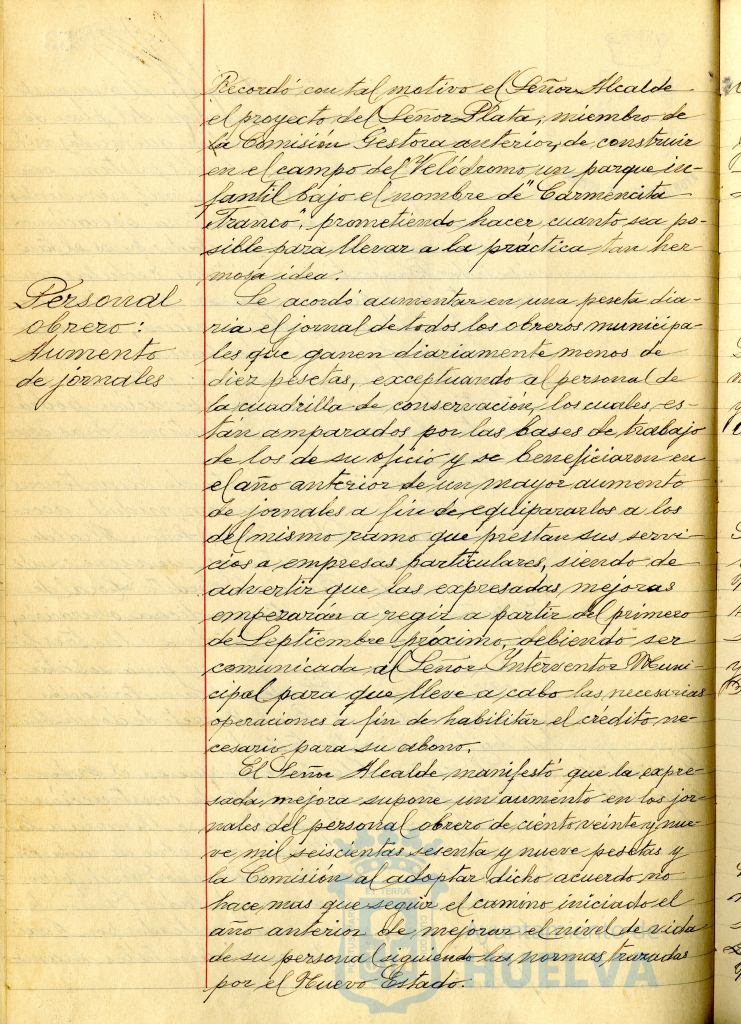 Recordó con tal motivo el Señor Alcalde
el proyecto del Señor Plata, miembro de
la Comisión Gestora anterior, de construir
en el campo del Velódromo un parque in-
fantil bajo el nombre de "Carmencita
Franco", prometiendo hacer cuanto sea po-
sible para llevar a la práctica tan her-
mosa idea.
Personal
obrero:
Aumento
de jornales
Se acordó aumentar en una peseta dia-
ria el jornal de todos los obreros municipa-
les que ganen diariamente menos de
diez pesetas, exceptuando al personal de
la cuadrilla de conservación, los cuales, es-
tán amparados por las bases de trabajo
de los de su oficio y se beneficiaron en
el año anterior de un mayor aumento
de jornales a fin de equipararlos a los
del mismo ramo que prestan sus servi-
cios a empresas particulares, siendo de
advertir que las expresadas mejoras
empezarán a regir a partir del primero
de Septiembre próximo, debiendo ser
comunicada al Señor Interventor Muni-
cipal para que lleve a cabo las necesarias
operaciones a fin de habilitar el crédito ne-
cesario para su abono.
El Señor Alcalde manifestó que la expre-
sada mejora supone un aumento en los jor-
nales del personal obrero de ciento veinte y nue-
ve mil seiscientas sesenta y nueve pesetas y
la Comisión al adoptar dicho acuerdo no
hace mas que seguir el camino iniciado el
año anterior de mejorar el nivel de vida
de su personal siguiendo las normas trazadas
por el Nuevo Estado.
HUELVA